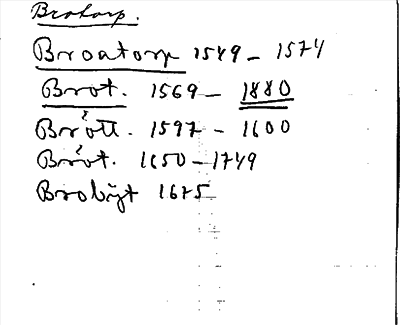 Brotorp.
Broatorp 1549 - 1574
Brot. 1569 - 1880
Brótt. 1597 - 1600
Brót. 1650 - 1749
Brobÿt 1675